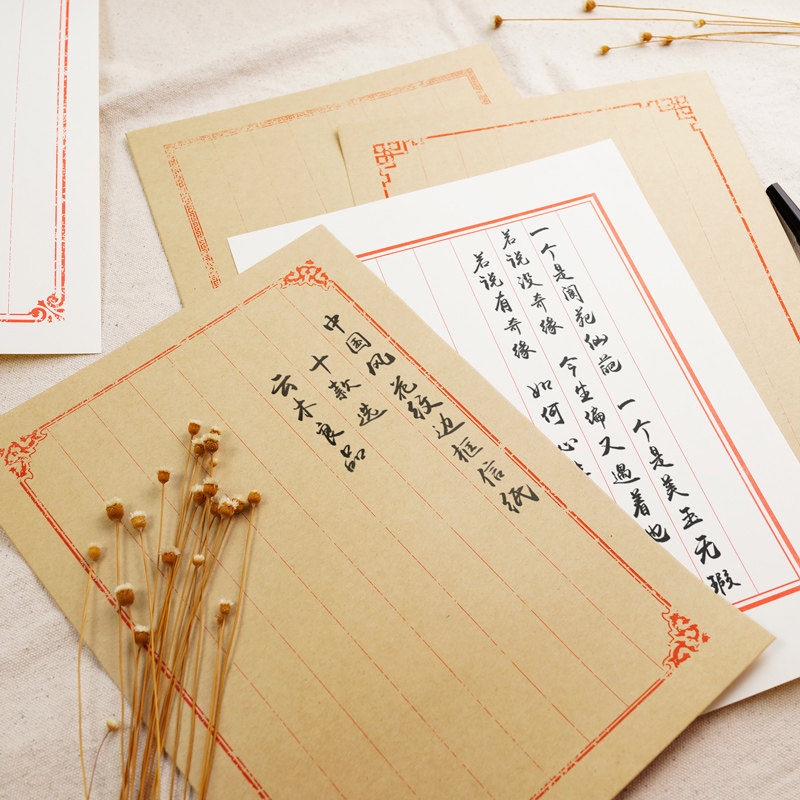 中国风 花纹边框信纸
十款选
云木良品
一个是阆苑仙葩 一个是美玉无瑕
若说没奇缘 今生偏又遇着他
若说有奇缘 如何心